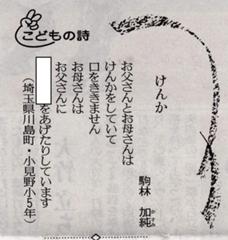 こどもの詩
けんか
駒林 加純
かすみ
お父さんとお母さんは
けんかをしていて
口をききません
お母さんは
お父さんに
をあげたりしています
(埼玉県川島町・小見野小5年)